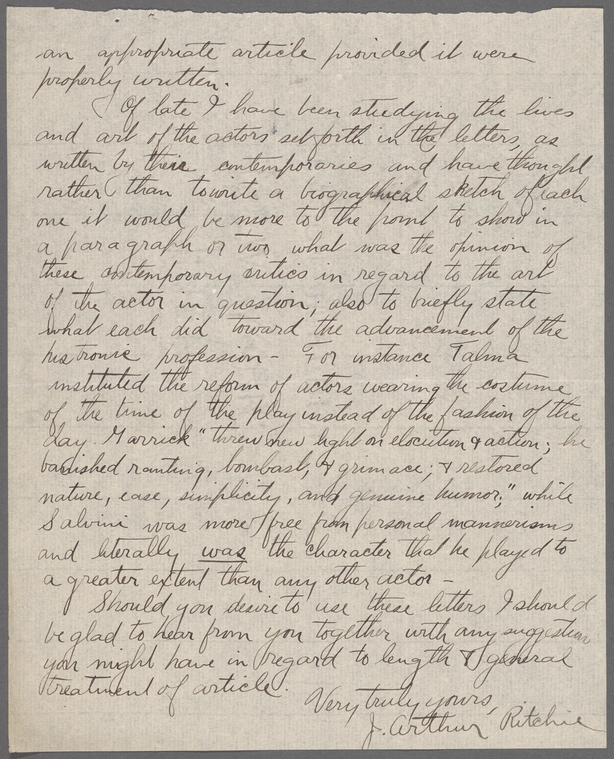 an appropriate article provided it were
properly written.
Of late I have been studying the lives
and art of the actors set forth in the letters, as
written by their contemporaries and have thought
rather than to write a biographical sketch of each
one it would be more to the point to show in
a paragraph or two, what was the opinion of
these contemporary critics in regard to the art
of the actor in question; also to briefly state
what each did toward the advancement of the
histronic profession - For instance Talma
instituted the reform of actors wearing the costume
of the time of the play instead of the fashion of the
day. Garrick "threw new light on elocution & action; he
banished ranting, bombast, & grimace; & restored
nature, ease, simplicity, and genuine humor;" while
Salvini was more free from personal mannerisms
and literally was the character that he played to
a greater extent than any other actor -
Should you desire to use these letters I should
be glad to hear from you together with any suggestion
you might have in regard to length & general
treatment of article.
Very truly yours,
J. Arthur Ritchie